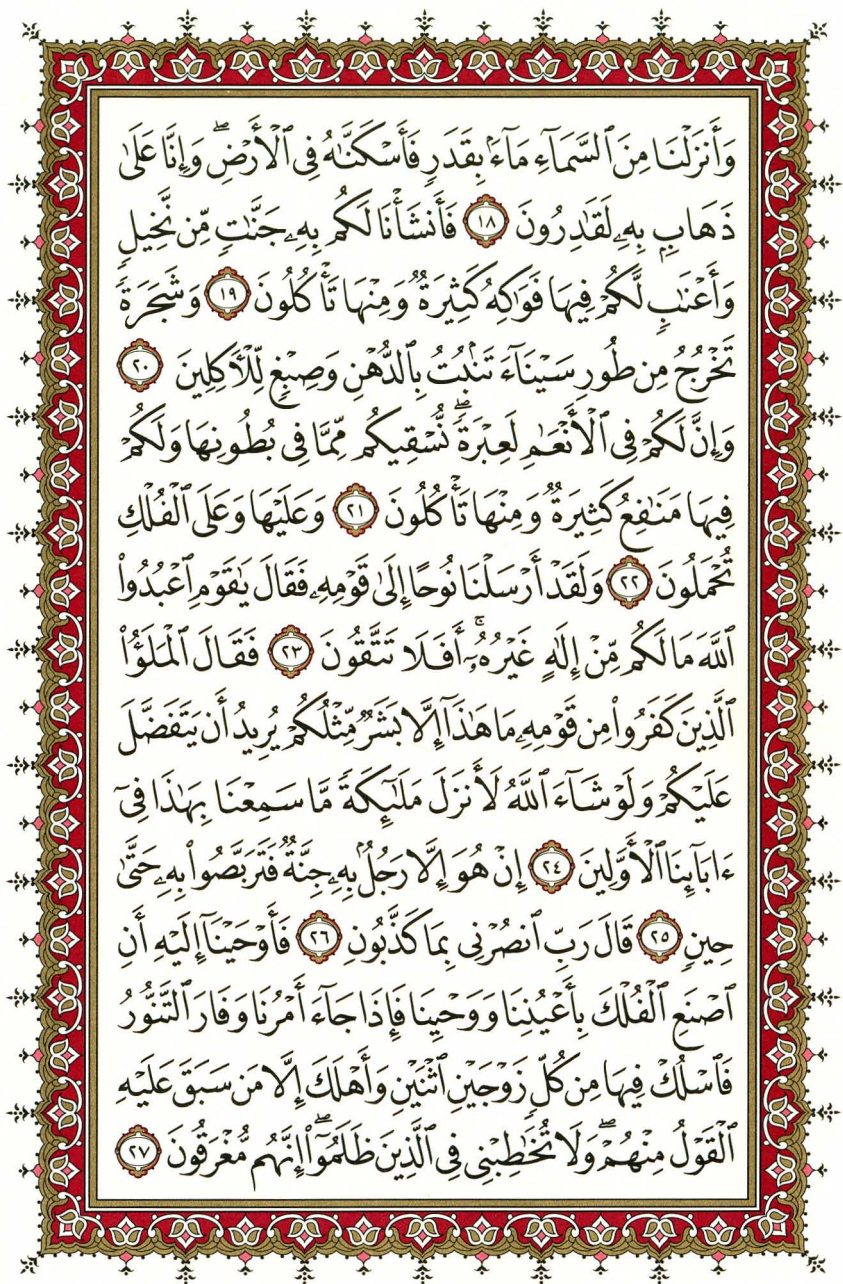 وَأَنزَلْنَا مِنَ ٱلسَّمَآءِ مَآءًۢ بِقَدَرٍ فَأَسْكَنَّٰهُ فِى ٱلْأَرْضِ ۖ وَإِنَّا عَلَىٰ
ذَهَابٍۭ بِهِۦ لَقَٰدِرُونَ ١٨ فَأَنشَأْنَا لَكُم بِهِۦ جَنَّٰتٍ مِّن نَّخِيلٍ
وَأَعْنَٰبٍ لَّكُمْ فِيهَا فَوَٰكِهُ كَثِيرَةٌ وَمِنْهَا تَأْكُلُونَ ١٩ وَشَجَرَةً
تَخْرُجُ مِن طُورِ سَيْنَآءَ تَنۢبُتُ بِٱلدُّهْنِ وَصِبْغٍ لِّلْءَاكِلِينَ ٢٠
وَإِنَّ لَكُمْ فِى ٱلْأَنْعَٰمِ لَعِبْرَةً ۖ نُّسْقِيكُم مِّمَّا فِى بُطُونِهَا وَلَكُمْ
فِيهَا مَنَٰفِعُ كَثِيرَةٌ وَمِنْهَا تَأْكُلُونَ ٢١ وَعَلَيْهَا وَعَلَى ٱلْفُلْكِ
تُحْمَلُونَ ٢٢ وَلَقَدْ أَرْسَلْنَا نُوحًا إِلَىٰ قَوْمِهِۦ فَقَالَ يَٰقَوْمِ ٱعْبُدُوا۟
ٱللَّهَ مَا لَكُم مِّنْ إِلَٰهٍ غَيْرُهُۥٓ ۚ أَفَلَا تَتَّقُونَ ٢٣ فَقَالَ ٱلْمَلَؤُا۟
ٱلَّذِينَ كَفَرُوا۟ مِن قَوْمِهِۦ مَا هَٰذَآ إِلَّا بَشَرٌ مِّثْلُكُمْ يُرِيدُ أَن يَتَفَضَّلَ
عَلَيْكُمْ وَلَوْ شَآءَ ٱللَّهُ لَأَنزَلَ مَلَٰٓئِكَةً مَّا سَمِعْنَا بِهَٰذَا فِىٓ
ءَابَآئِنَا ٱلْأَوَّلِينَ ٢٤ إِنْ هُوَ إِلَّا رَجُلٌۢ بِهِۦ جِنَّةٌ فَتَرَبَّصُوا۟ بِهِۦ حَتَّىٰ
حِينٍ ٢٥ قَالَ رَبِّ ٱنصُرْنِى بِمَا كَذَّبُونِ ٢٦ فَأَوْحَيْنَآ إِلَيْهِ أَنِ
ٱصْنَعِ ٱلْفُلْكَ بِأَعْيُنِنَا وَوَحْيِنَا فَإِذَا جَآءَ أَمْرُنَا وَفَارَ ٱلتَّنُّورُ
فَٱسْلُكْ فِيهَا مِن كُلٍّ زَوْجَيْنِ ٱثْنَيْنِ وَأَهْلَكَ إِلَّا مَن سَبَقَ عَلَيْهِ
ٱلْقَوْلُ مِنْهُمْ ۖ وَلَا تُخَٰطِبْنِى فِى ٱلَّذِينَ ظَلَمُوٓا۟ ۖ إِنَّهُم مُّغْرَقُونَ ٢٧